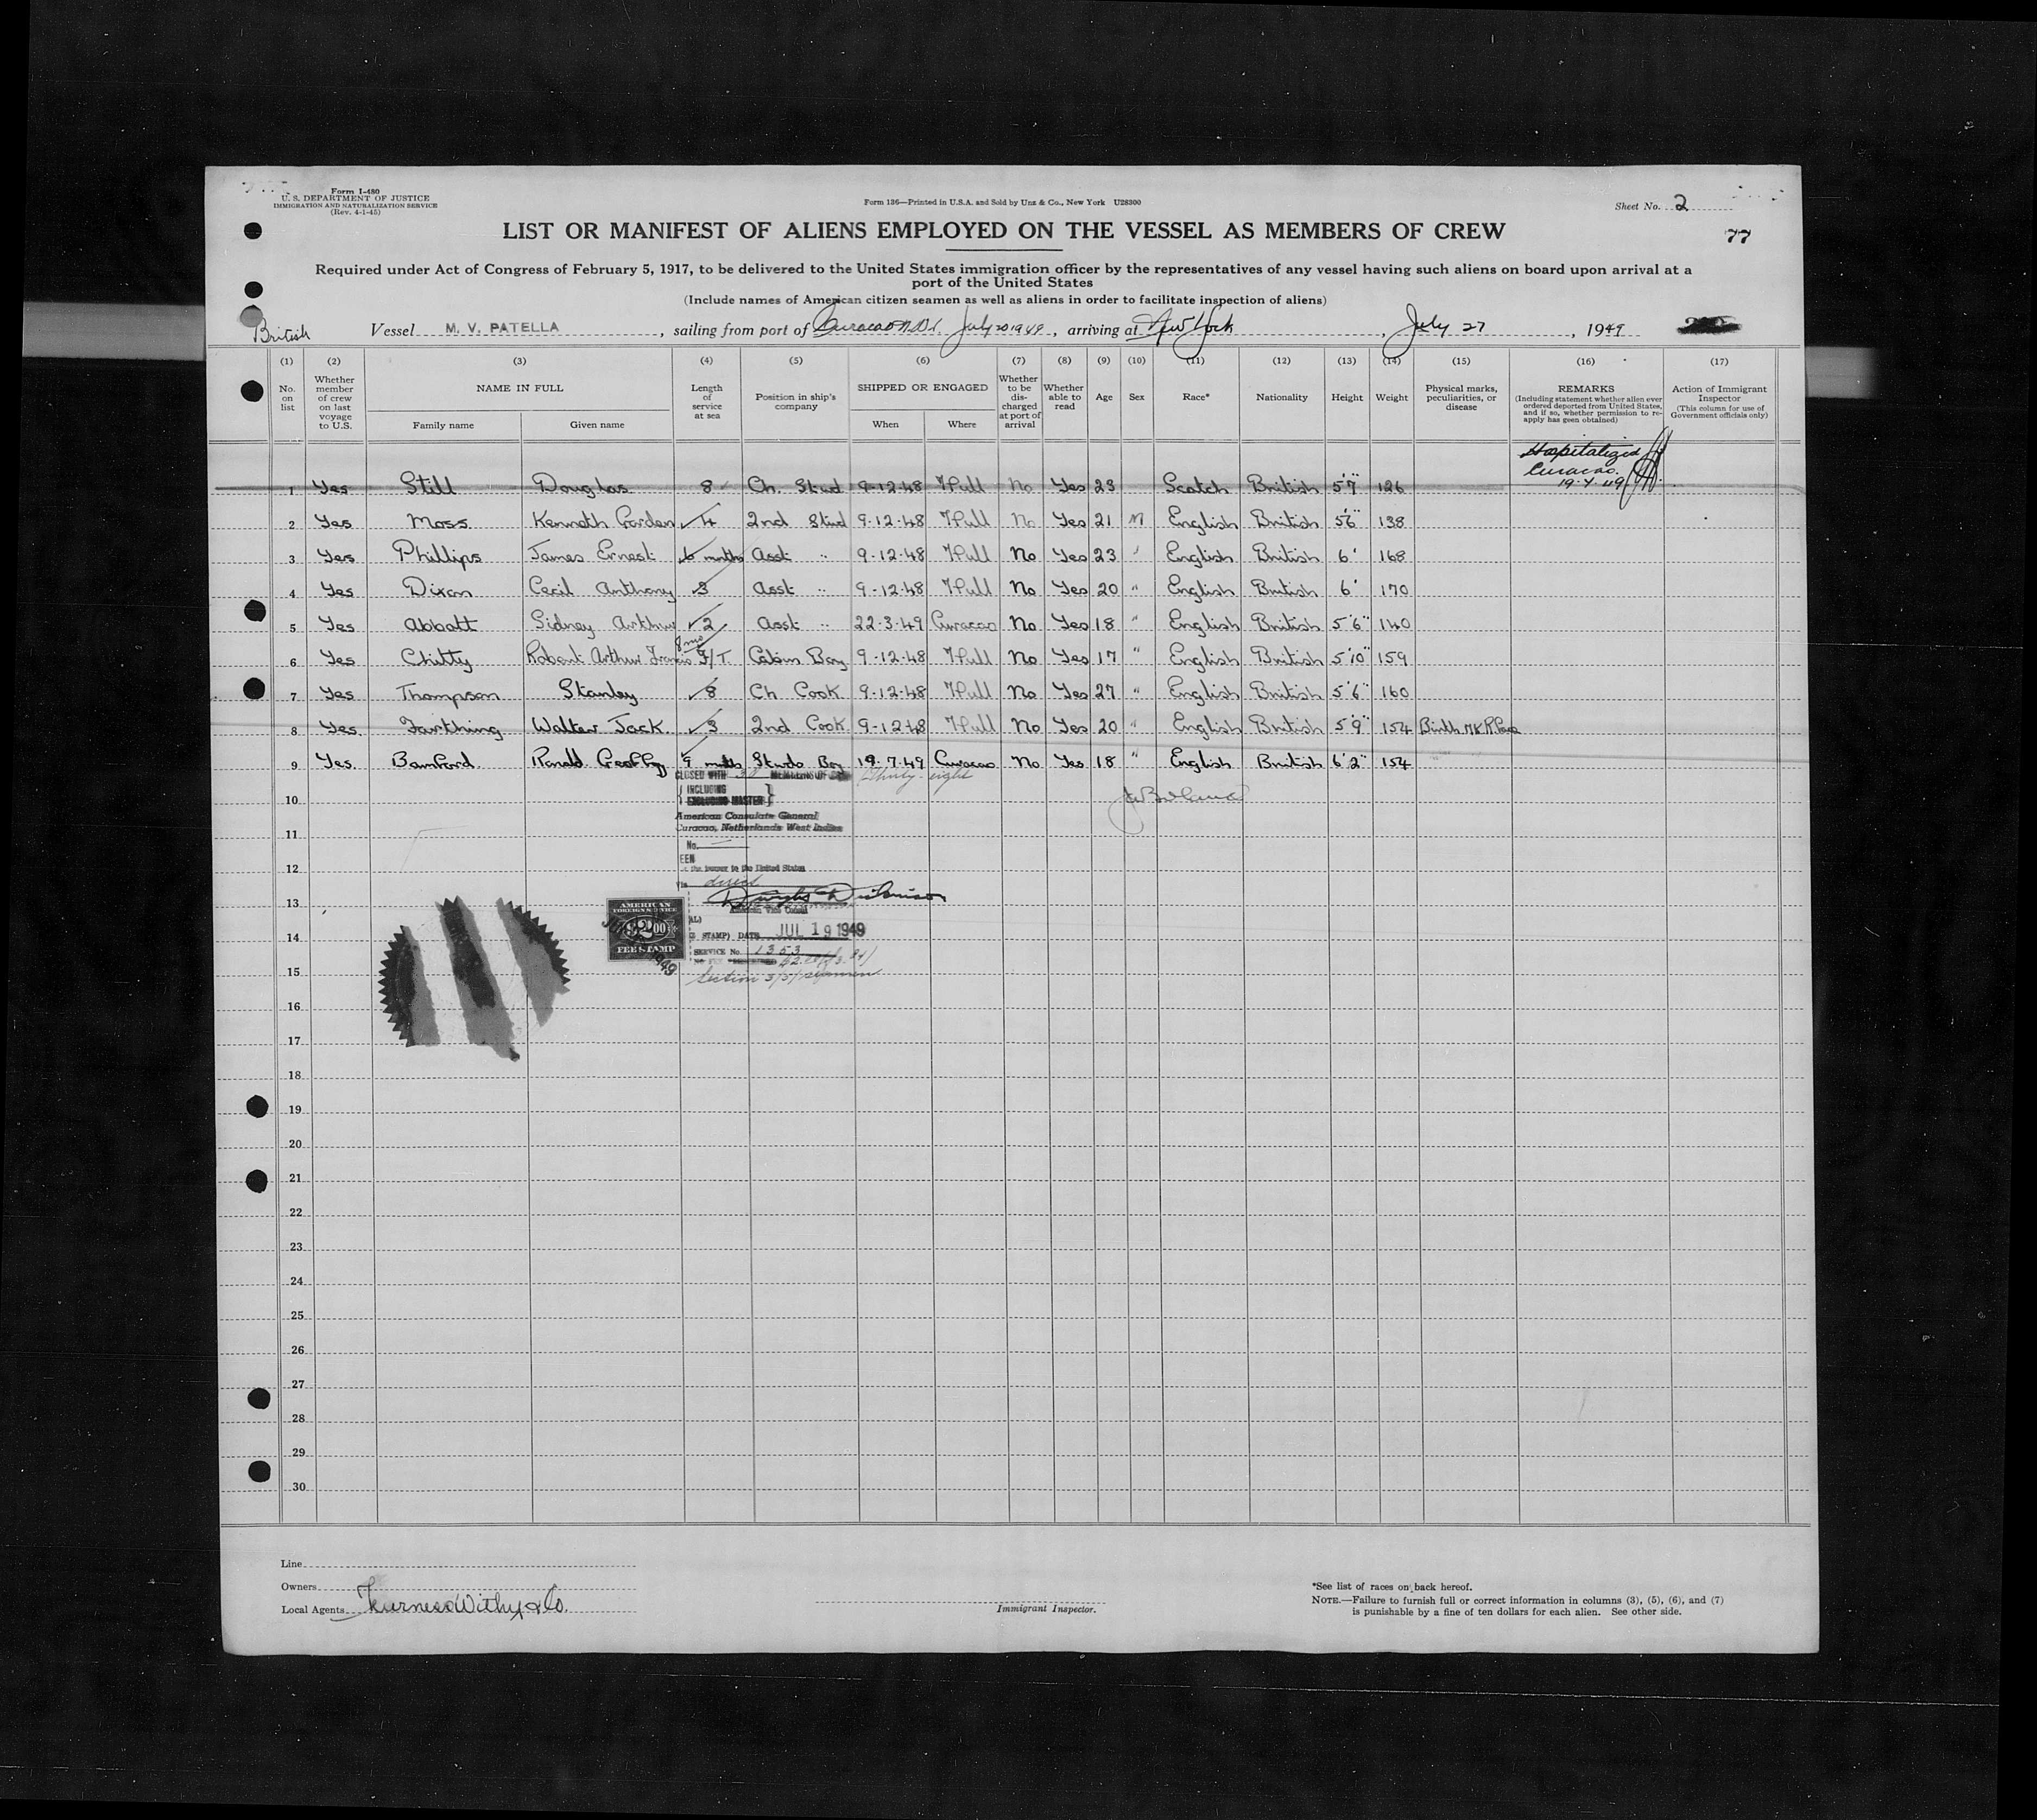 Form I-480
U. S. DEPARTMENT OF JUSTICE
IMMIGRATION AND NATURALIZATION SERVICE
(Rev. 4-1-45)
Form 136—Printed in U.S.A. and Sold by Unz & Co., New York U28300
Sheet No. 2
77
LIST OR MANIFEST OF ALIENS EMPLOYED ON THE VESSEL AS MEMBERS OF CREW
Required under Act of Congress of February 5, 1917, to be delivered to the United States immigration officer by the representatives of any vessel having such aliens on board upon arrival at a
port of the United States
(Include names of American citizen seamen as well as aliens in order to facilitate inspection of aliens)
British Vessel M. V. PATELLA, sailing from port of Curacao N.W.I. July 20 1949, arriving at New York, July 27, 1949
(1) (2) (3) (4) (5) (6) (7) (8) (9) (10) (11) (12) (13) (14) (15) (16) (17)
No. on list
Whether member of crew on last voyage to U.S.
NAME IN FULL
Family name Given name
Length of service at sea
Position in ship's company
SHIPPED OR ENGAGED
When Where
Whether to be discharged at port of arrival
Whether able to read
Age
Sex
Race*
Nationality
Height
Weight
Physical marks, peculiarities, or disease
REMARKS
(Including statement whether alien ever ordered deported from United States, and if so, whether permission to re-apply has been obtained)
Action of Immigrant Inspector
(This column for use of Government officials only)
Hospitalized
Curacao.
19.7.49
1 Yes Still Douglas 8 Ch. Stwd 9-12-48 Hull No Yes 23 Scotch British 5'7" 126
2 Yes Moss Kenneth Gordon 4 2nd Stwd 9-12-48 Hull No Yes 21 M English British 5'6" 138
3 Yes Phillips James Ernest 6 mnths Asst " 9-12-48 Hull No Yes 23 " English British 6' 168
4 Yes Dixon Cecil Anthony 3 Asst " 9-12-48 Hull No Yes 20 " English British 6' 170
5 Yes Abbott Sidney Arthur 2 Asst " 22-3-49 Curacao No Yes 18 " English British 5'6" 140
6 Yes Chitty Robert Arthur Francis F/T. Cabin Boy 9-12-48 Hull No Yes 17 " English British 5'10" 159
7 Yes Thompson Stanley 8 Ch. Cook 9-12-48 Hull No Yes 27 " English British 5'6" 160
8 Yes Farthing Walter Jack. 3 2nd Cook 9-12-48 Hull No Yes 20 " English British 5'9" 154 Birth MK R.
9 Yes. Bamford. Ronald Geoffrey 9 mnths Stwds Boy 19.7.49 Curacao No Yes 18 " English British 6'2" 154
CLOSED WITH 38 MEMBERS OF CREW (Thirty-eight
INCLUDING
EXCLUDING MASTER
American Consulate General
Curacao, Netherlands West Indies
No.
EEN
the journey to the United States
Via direct
American Vice Consul
AL)
STAMP) DATE JUL 19 1949
SERVICE No. 1353
Section 3/5/ seamen
AMERICAN
FOREIGN SERVICE
$2.00
FEE STAMP
1949
10
11
12
13
14
15
16
17
18
19
20
21
22
23
24
25
26
27
28
29
30
Line
Owners
Local Agents Furness Withy & Co.
Immigrant Inspector.
*See list of races on back hereof.
NOTE.—Failure to furnish full or correct information in columns (3), (5), (6), and (7)
is punishable by a fine of ten dollars for each alien. See other side.